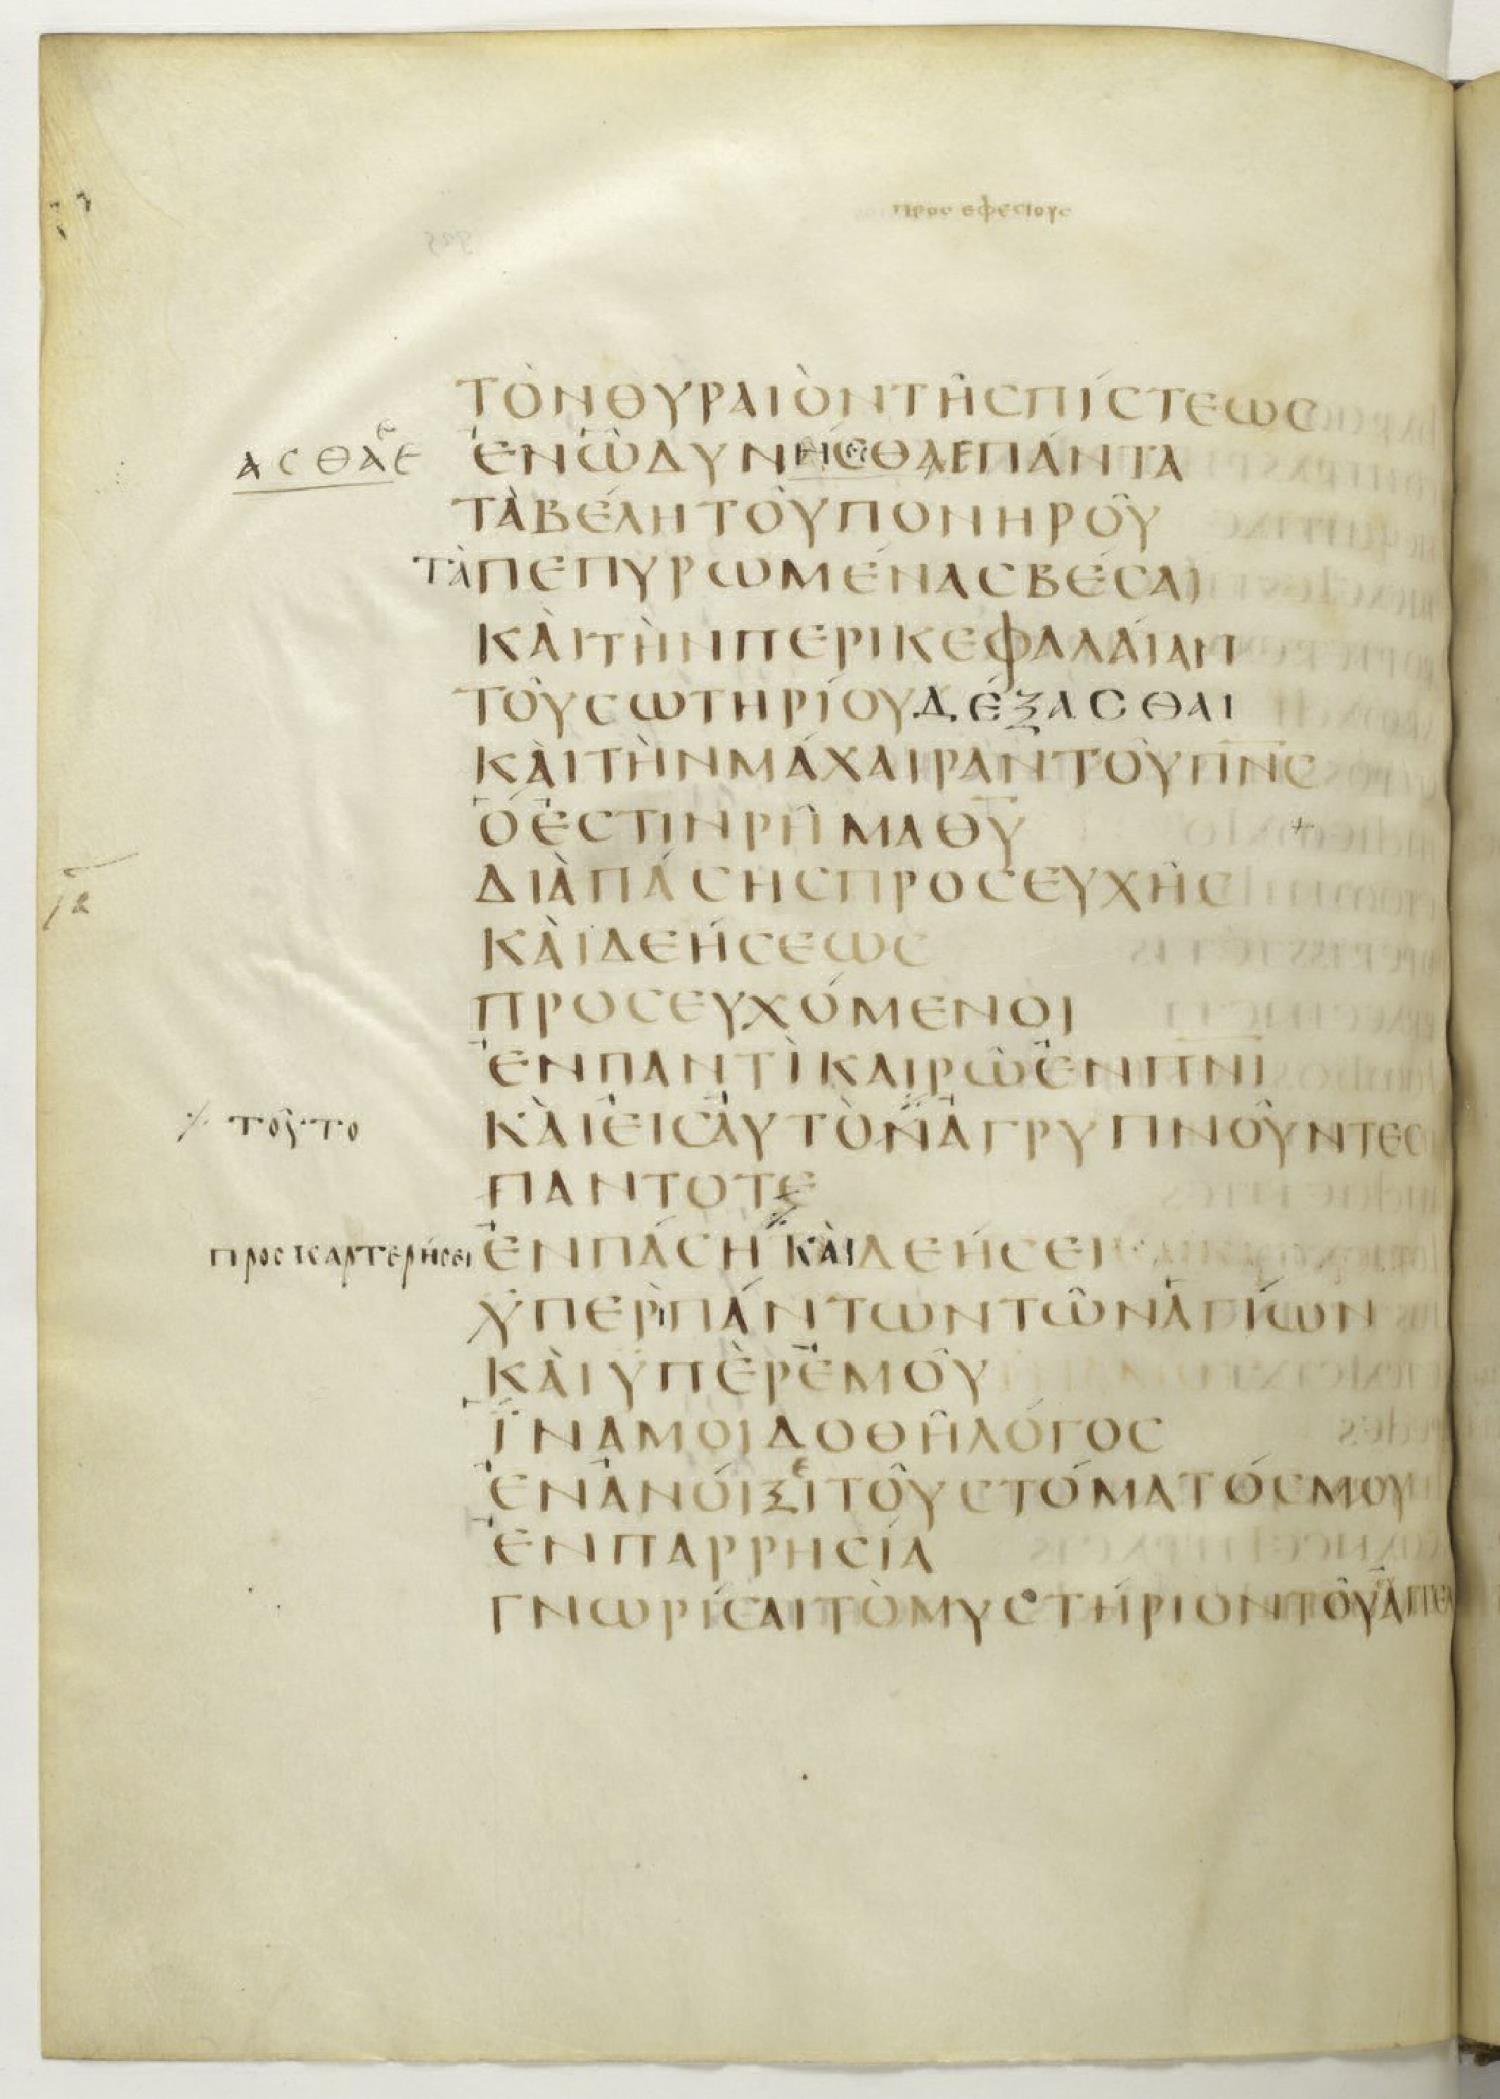 προς εφεσιους
ΤΟΝΘΥΡΑΙΟΝΤΗΣΠΙΣΤΕΩΣ
ΑΣΘΑΕ ΕΝΩΔΥΝΗΣΘΑΕΠΑΝΤΑ
ΤΑΒΕΛΗΤΟΥΠΟΝΗΡΟΥ
ΤΑΠΕΠΥΡΩΜΕΝΑΣΒΕΣΑΙ
ΚΑΙΤΗΝΠΕΡΙΚΕΦΑΛΑΙΑΝ
ΤΟΥΣΩΤΗΡΙΟΥΔΕΞΑΣΘΑΙ
ΚΑΙΤΗΝΜΑΧΑΙΡΑΝΤΟΥΠΝΣ
ΟΕΣΤΙΝΡΗΜΑΘΥ
ΔΙΑΠΑΣΗΣΠΡΟΣΕΥΧΗΣ
ΚΑΙΔΕΗΣΕΩΣ
ΠΡΟΣΕΥΧΟΜΕΝΟΙ
ΕΝΠΑΝΤΙΚΑΙΡΩΕΝΠΝΙ
ΤΟΥΤΟ ΚΑΙΕΙΣΑΥΤΟΝΑΓΡΥΠΝΟΥΝΤΕΣ
ΠΑΝΤΟΤΕ
ΠΡΟΣΚΑΡΤΕΡΗΣΕΙ ΕΝΠΑΣΗ ΚΑΙΔΕΗΣΕΙ
ΥΠΕΡΠΑΝΤΩΝΤΩΝΑΓΙΩΝ
ΚΑΙΥΠΕΡΕΜΟΥ
ΙΝΑΜΟΙΔΟΘΗΛΟΓΟΣ
ΕΝΑΝΟΙΞΙΤΟΥΣΤΟΜΑΤΟΣΜΟΥ
ΕΝΠΑΡΡΗΣΙΑ
ΓΝΩΡΙΣΑΙΤΟΜΥΣΤΗΡΙΟΝΤΟΥ